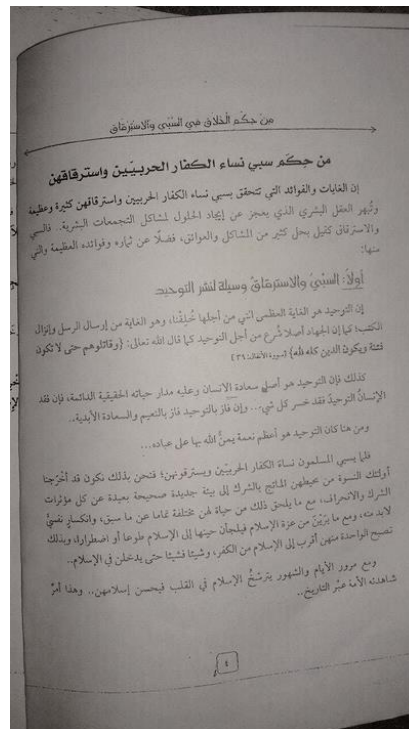 من حِكَم الخلاق في السَّبْي والاسترقاق
من حِكَم سبي نساء الكفار الحربيّين واسترقاقهن
إن الغايات والفوائد التي تتحقق بسبي نساء الكفار الحربيين واسترقاقهن كثيرة وعظيمة
وتُبهر العقل البشري الذي يعجز عن إيجاد الحلول لمشاكل التجمعات البشرية.. فالسبي
والاسترقاق كفيل بحل كثير من المشاكل والعوائق، فضلًا عن ثماره وفوائده العظيمة والتي
منها:
أولًا: السَّبْيُ والاسترقاقُ وسيلة لنشر التوحيد
إن التوحيد هو الغاية العظمى التي من أجلها خُلِقْنا، وهو الغاية من إرسال الرسل وإنزال
الكتب؛ كما إن الجهاد أصلًا شُرع من أجل التوحيد كما قال الله تعالى: {وقاتلوهم حتى لا تكون
فتنة ويكون الدين كله لله} [سورة الأنفال: ٣٩]
كذلك فإن التوحيد هو أصل سعادة الإنسان وعليه مدار حياته الحقيقية الدائمة، فإن فقد
الإنسانُ التوحيدَ فقد خسر كل شيء... وإن فاز بالتوحيد فاز بالنعيم والسعادة الأبدية..
ومن هنا كان التوحيد هو أعظم نعمة يمنُّ الله بها على عباده...
فلما يسبي المسلمون نساءَ الكفار الحربيّين ويسترقونهن؛ فنحن بذلك نكون قد أخرجنا
أولئك النسوة من محيطهن المائج بالشرك إلى بيئة جديدة صحيحة بعيدة عن كل مؤثرات
الشرك والانحراف، مع ما يلحق ذلك من حياة لهن مختلفة تماما عن ما سبق، وانكسارٍ نفسيٍّ
لابد منه، ومع ما يَرَيْنَ من عزة الإسلام فيلجأن حينها إلى الإسلام طوعا أو اضطرارا، وبذلك
تصبح الواحدة منهن أقرب إلى الإسلام من الكفر، وشيئا فشيئا حتى يدخلن في الإسلام..
ومع مرور الأيام والشهور يترسَّخُ الإسلام في القلب فيحسن إسلامهن.. وهذا أمرٌ
شاهدته الأمة عبْر التاريخ..
٤